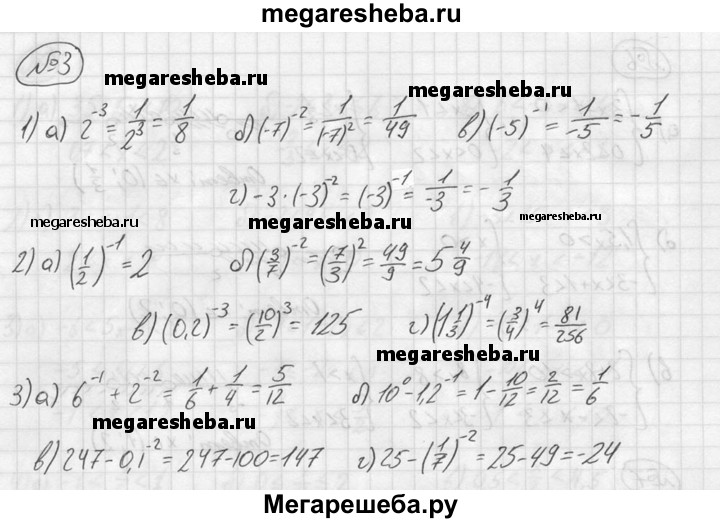 megaresheba.ru
№3
megaresheba.ru megaresheba.ru
1) а) 2^{-3} = 1/2^3 = 1/8 б) (-7)^{-2} = 1/(-7)^2 = 1/49 в) (-5)^{-1} = 1/-5 = -1/5
г) -3·(-3)^{-2} = (-3)^{-1} = 1/-3 = -1/3
megaresheba.ru megaresheba.ru megaresheba.ru
2) а) (1/2)^{-1} = 2 б) (3/7)^{-2} = (7/3)^2 = 49/9 = 5 4/9
в) (0,2)^{-3} = (10/2)^3 = 125 г) (1 1/3)^{-4} = (3/4)^4 = 81/256
megaresheba.ru
3) а) 6^{-1} + 2^{-2} = 1/6 + 1/4 = 5/12 б) 10^0 - 1,2^{-1} = 1 - 10/12 = 2/12 = 1/6
megaresheba.ru
в) 247 - 0,1^{-2} = 247 - 100 = 147 г) 25 - (1/7)^{-2} = 25 - 49 = -24
Мегарешеба.ру